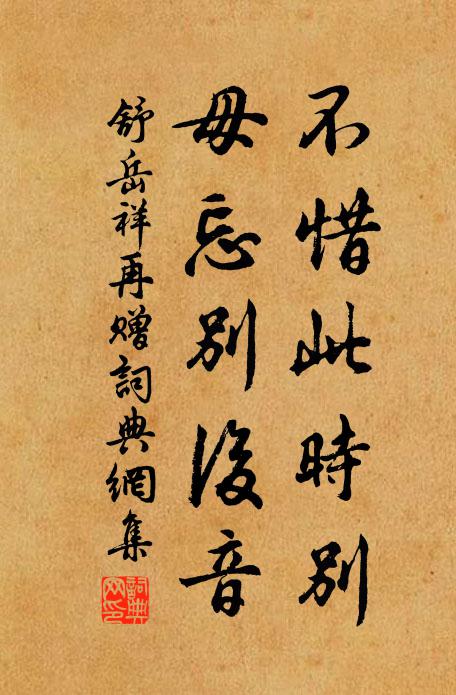 不惜此時別
毋忘別後音
舒岳祥再赠詞典網集
詞典
网印